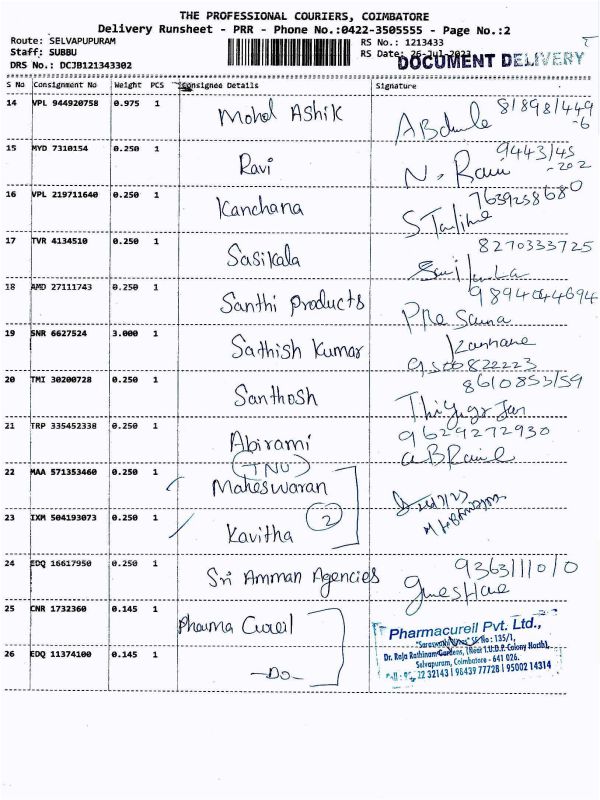 THE PROFESSIONAL COURIERS, COIMBATORE
Delivery Runsheet - PRR - Phone No.:0422-3505555 - Page No.:2
Route: SELVAPUPURAM
Staff: SUBBU
DRS No.: DCJB121343302
RS No.: 1213433
RS Date: 26-Jul-2023
DOCUMENT DELIVERY
S No Consignment No Weight PCS Consignee Details Signature
14 VPL 944920758 0.975 1 Mohd Ashik
15 MYD 7310154 0.250 1 Ravi N. Ravi
16 VPL 219711640 0.250 1 Kanchana 7639258680
17 TVR 4134510 0.250 1 Sasikala 8270333725
18 AMD 27111743 0.250 1 Santhi Products 9894044694
19 SNR 6627524 3.000 1 Sathish Kumar
9500822223
20 TMI 30200728 0.250 1 Santhosh 8610853159
21 TRP 335452338 0.250 1 Abirami 9629272930
(TNU)
22 MAA 571353460 0.250 1 Maheswaran
23 IXM 504193073 0.250 1 Kavitha 2
24 EDQ 16617950 0.250 1 Sri Amman Agencies 9363111010
25 CNR 1732360 0.145 1 Pharma Cureil
26 EDQ 11374100 0.145 1 -Do-
Pharmacureil Pvt. Ltd.,
SF No : 135/1,
Dr. Raja Rathinam Gardens, (Near T.U.D.P. Colony North),
Selvapuram, Coimbatore - 641 026.
22 32143 | 98439 77728 | 95002 14314